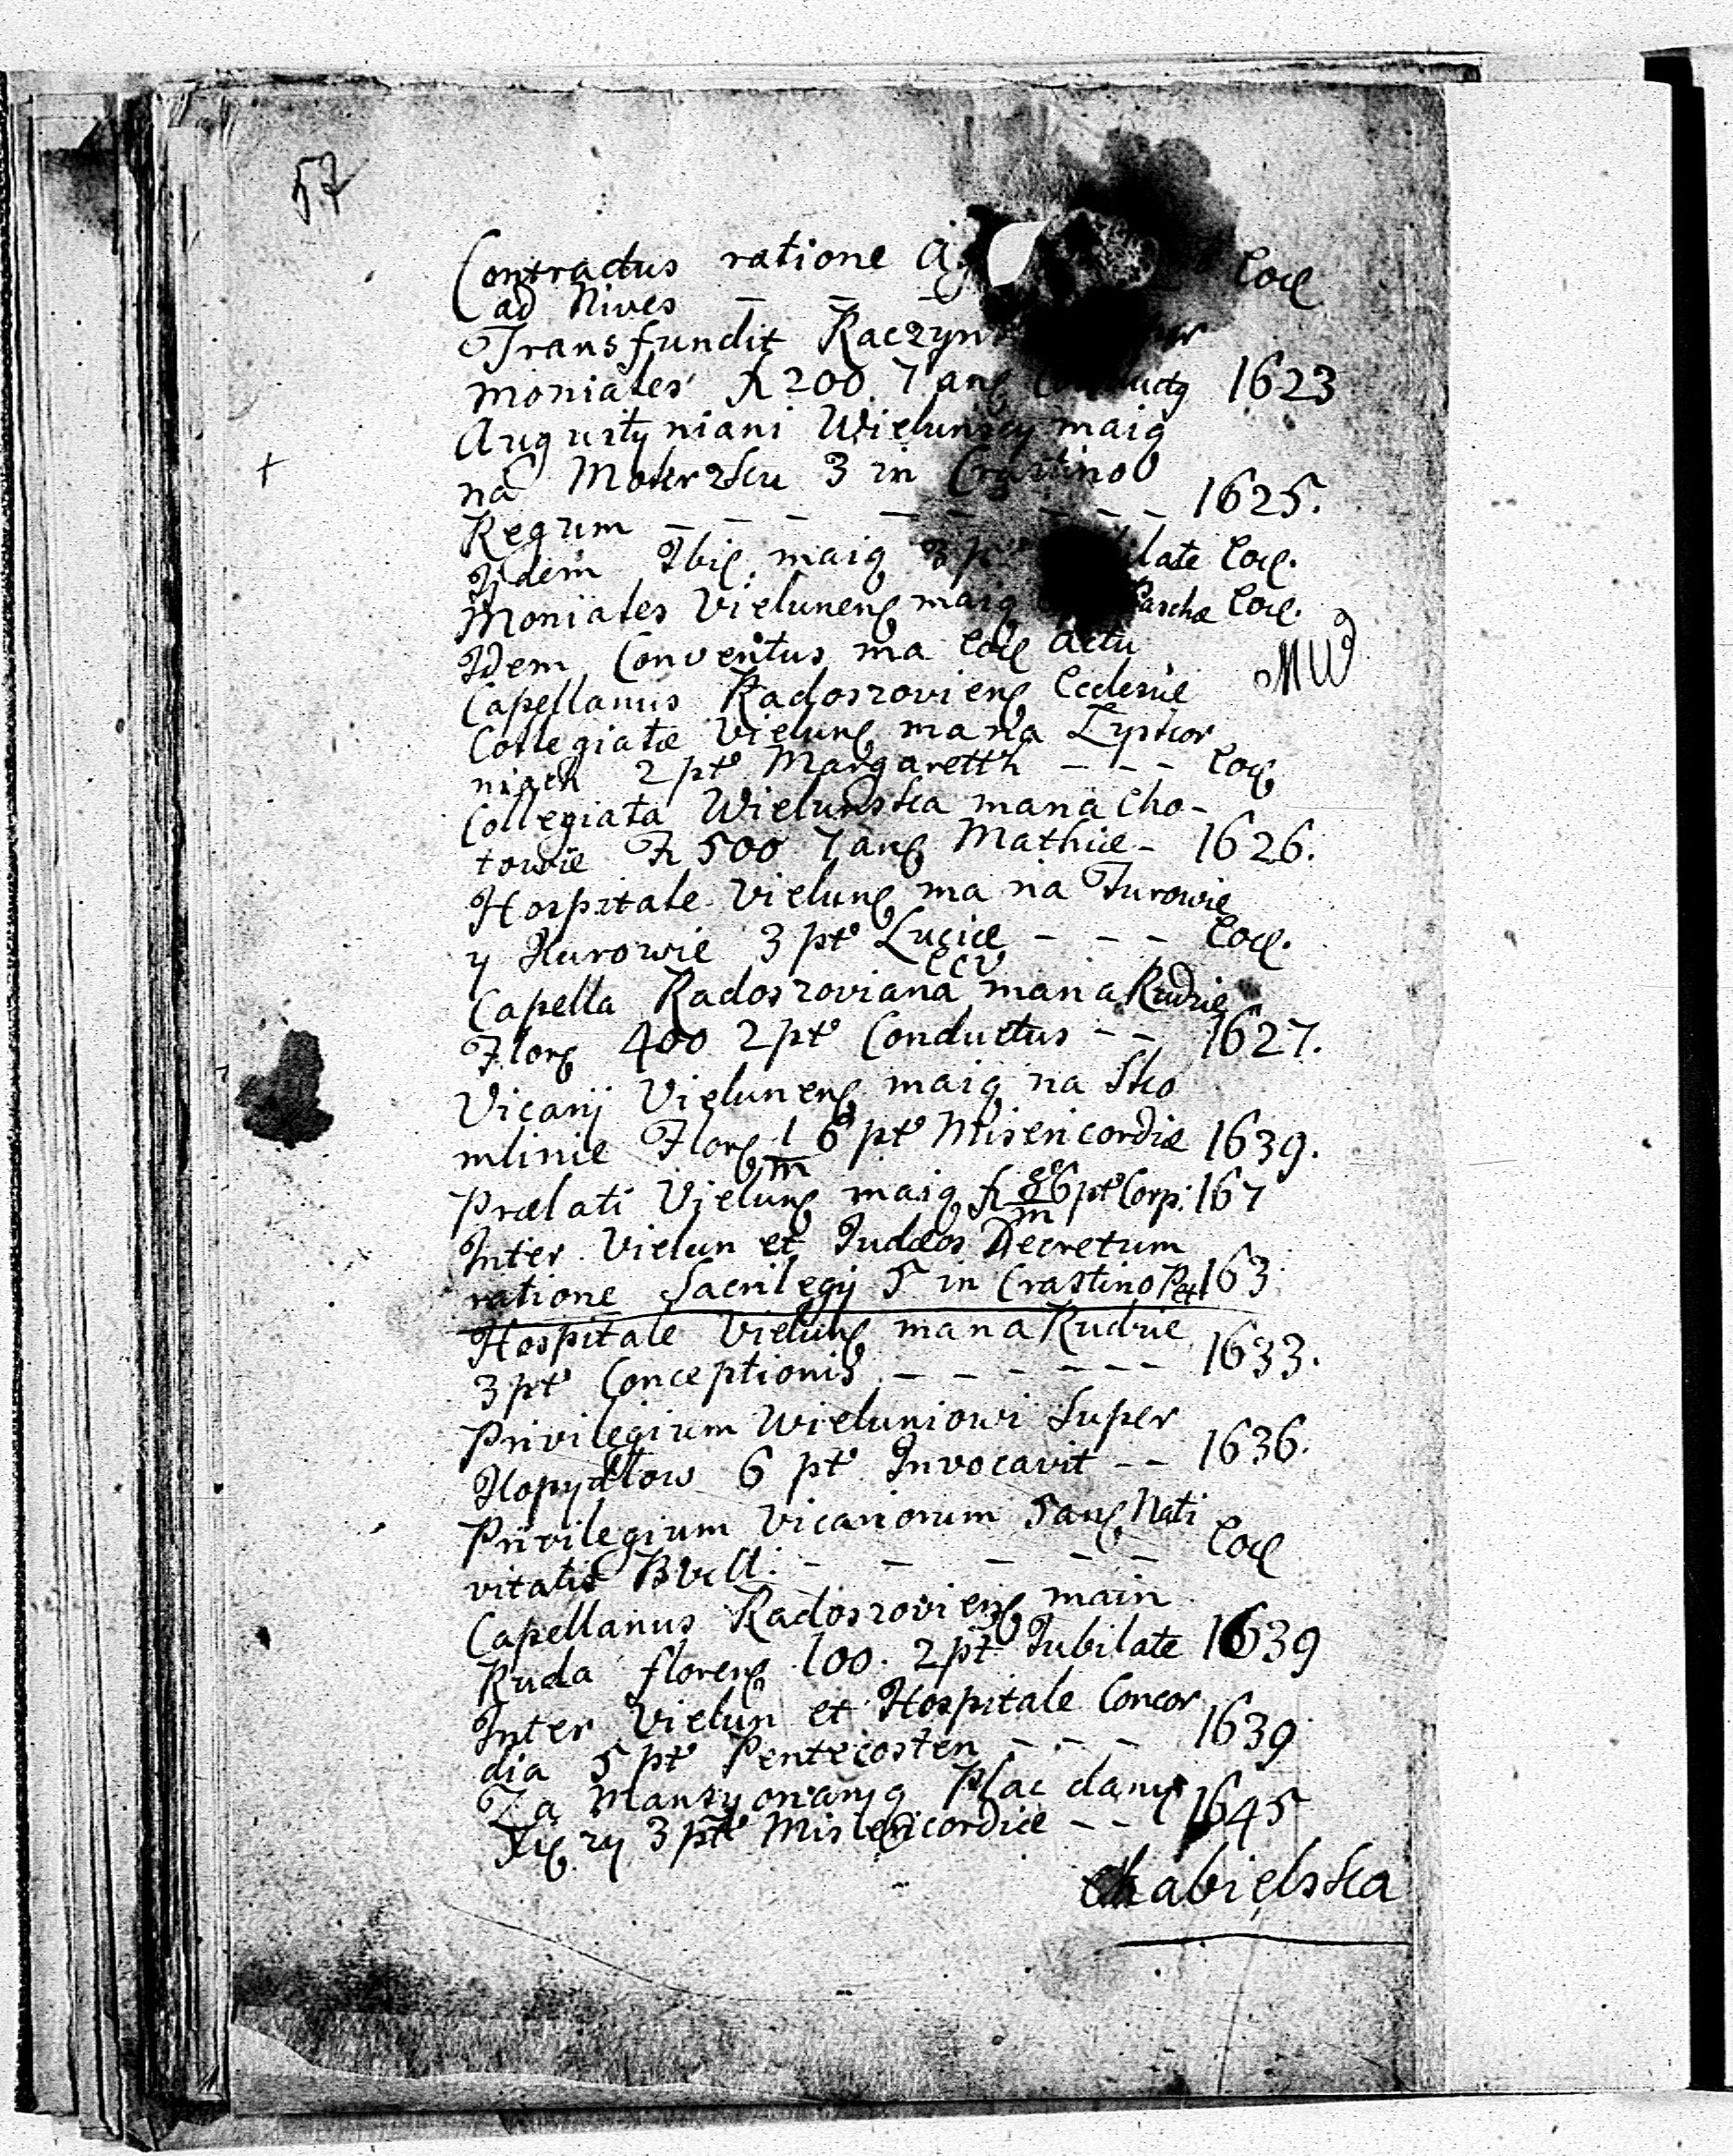 57
Contractus ratione Eod
ad Nives - - -
Transfundit
moniales fl 200 7 anꝭ 1623
Augustyniani Wielunscy maią
na Mokrzku 3 in Crastino
Regum - - - - - - - - 1625.
Ijdem Ibiꝭ maią late Eoꝭ.
Moniales Vielunenꝭ maią Paschæ Eoꝭ.
Idem Conventus ma eoꝭ actu
Capellanus Radoszovienꝭ Ecclesiæ
Collegiatæ Vielunꝭ ma na Łyskor
niach 2 pt° Margaretth - - - Eoꝭ
Collegiata Wielunska ma na Cho-
towie Fl 500 7 anꝭ Mathiæ - 1626.
Hospitale Vielunꝭ ma na Turowie
y Kurowie 3 pt° Luciæ - - - Eoꝭ.
Capella Radoszoviana ma na Rudzie
Florꝭ 400 2 pt° Conductus - - 1627.
Vicarij Vielunenꝭ maią na Sko
mlinie Florꝭ 1/m 6 pt° Misericordiæ 1639.
Prælati Vielunꝭ maią 6 pt° Corp: 167
Inter Vielun et Judæos Decretum
ratione Sacrilegij 5 in Crastino Pet 163
Hospitale Vielunꝭ ma na Rudzie
3 pt° Conceptionis - - - - - - 1633.
Privilegium Wieluniowi Super
Kopydłow 6 pt° Invocavit - - 1636.
Privilegium Vicariorum 5 anꝭ Nati
vitatis - - - - - Eoꝭ
Capellanus Radoszovienꝭ ma in
Ruda florenꝭ 100. 2 pt° Jubilate 1639
Inter Vielun et Hospitale Concor
dia 5 pt° Pentecosten - - - 1639
Za Mansyonaryą Plac dany
3 pt° Misericordiæ - - 1645
Chabielska